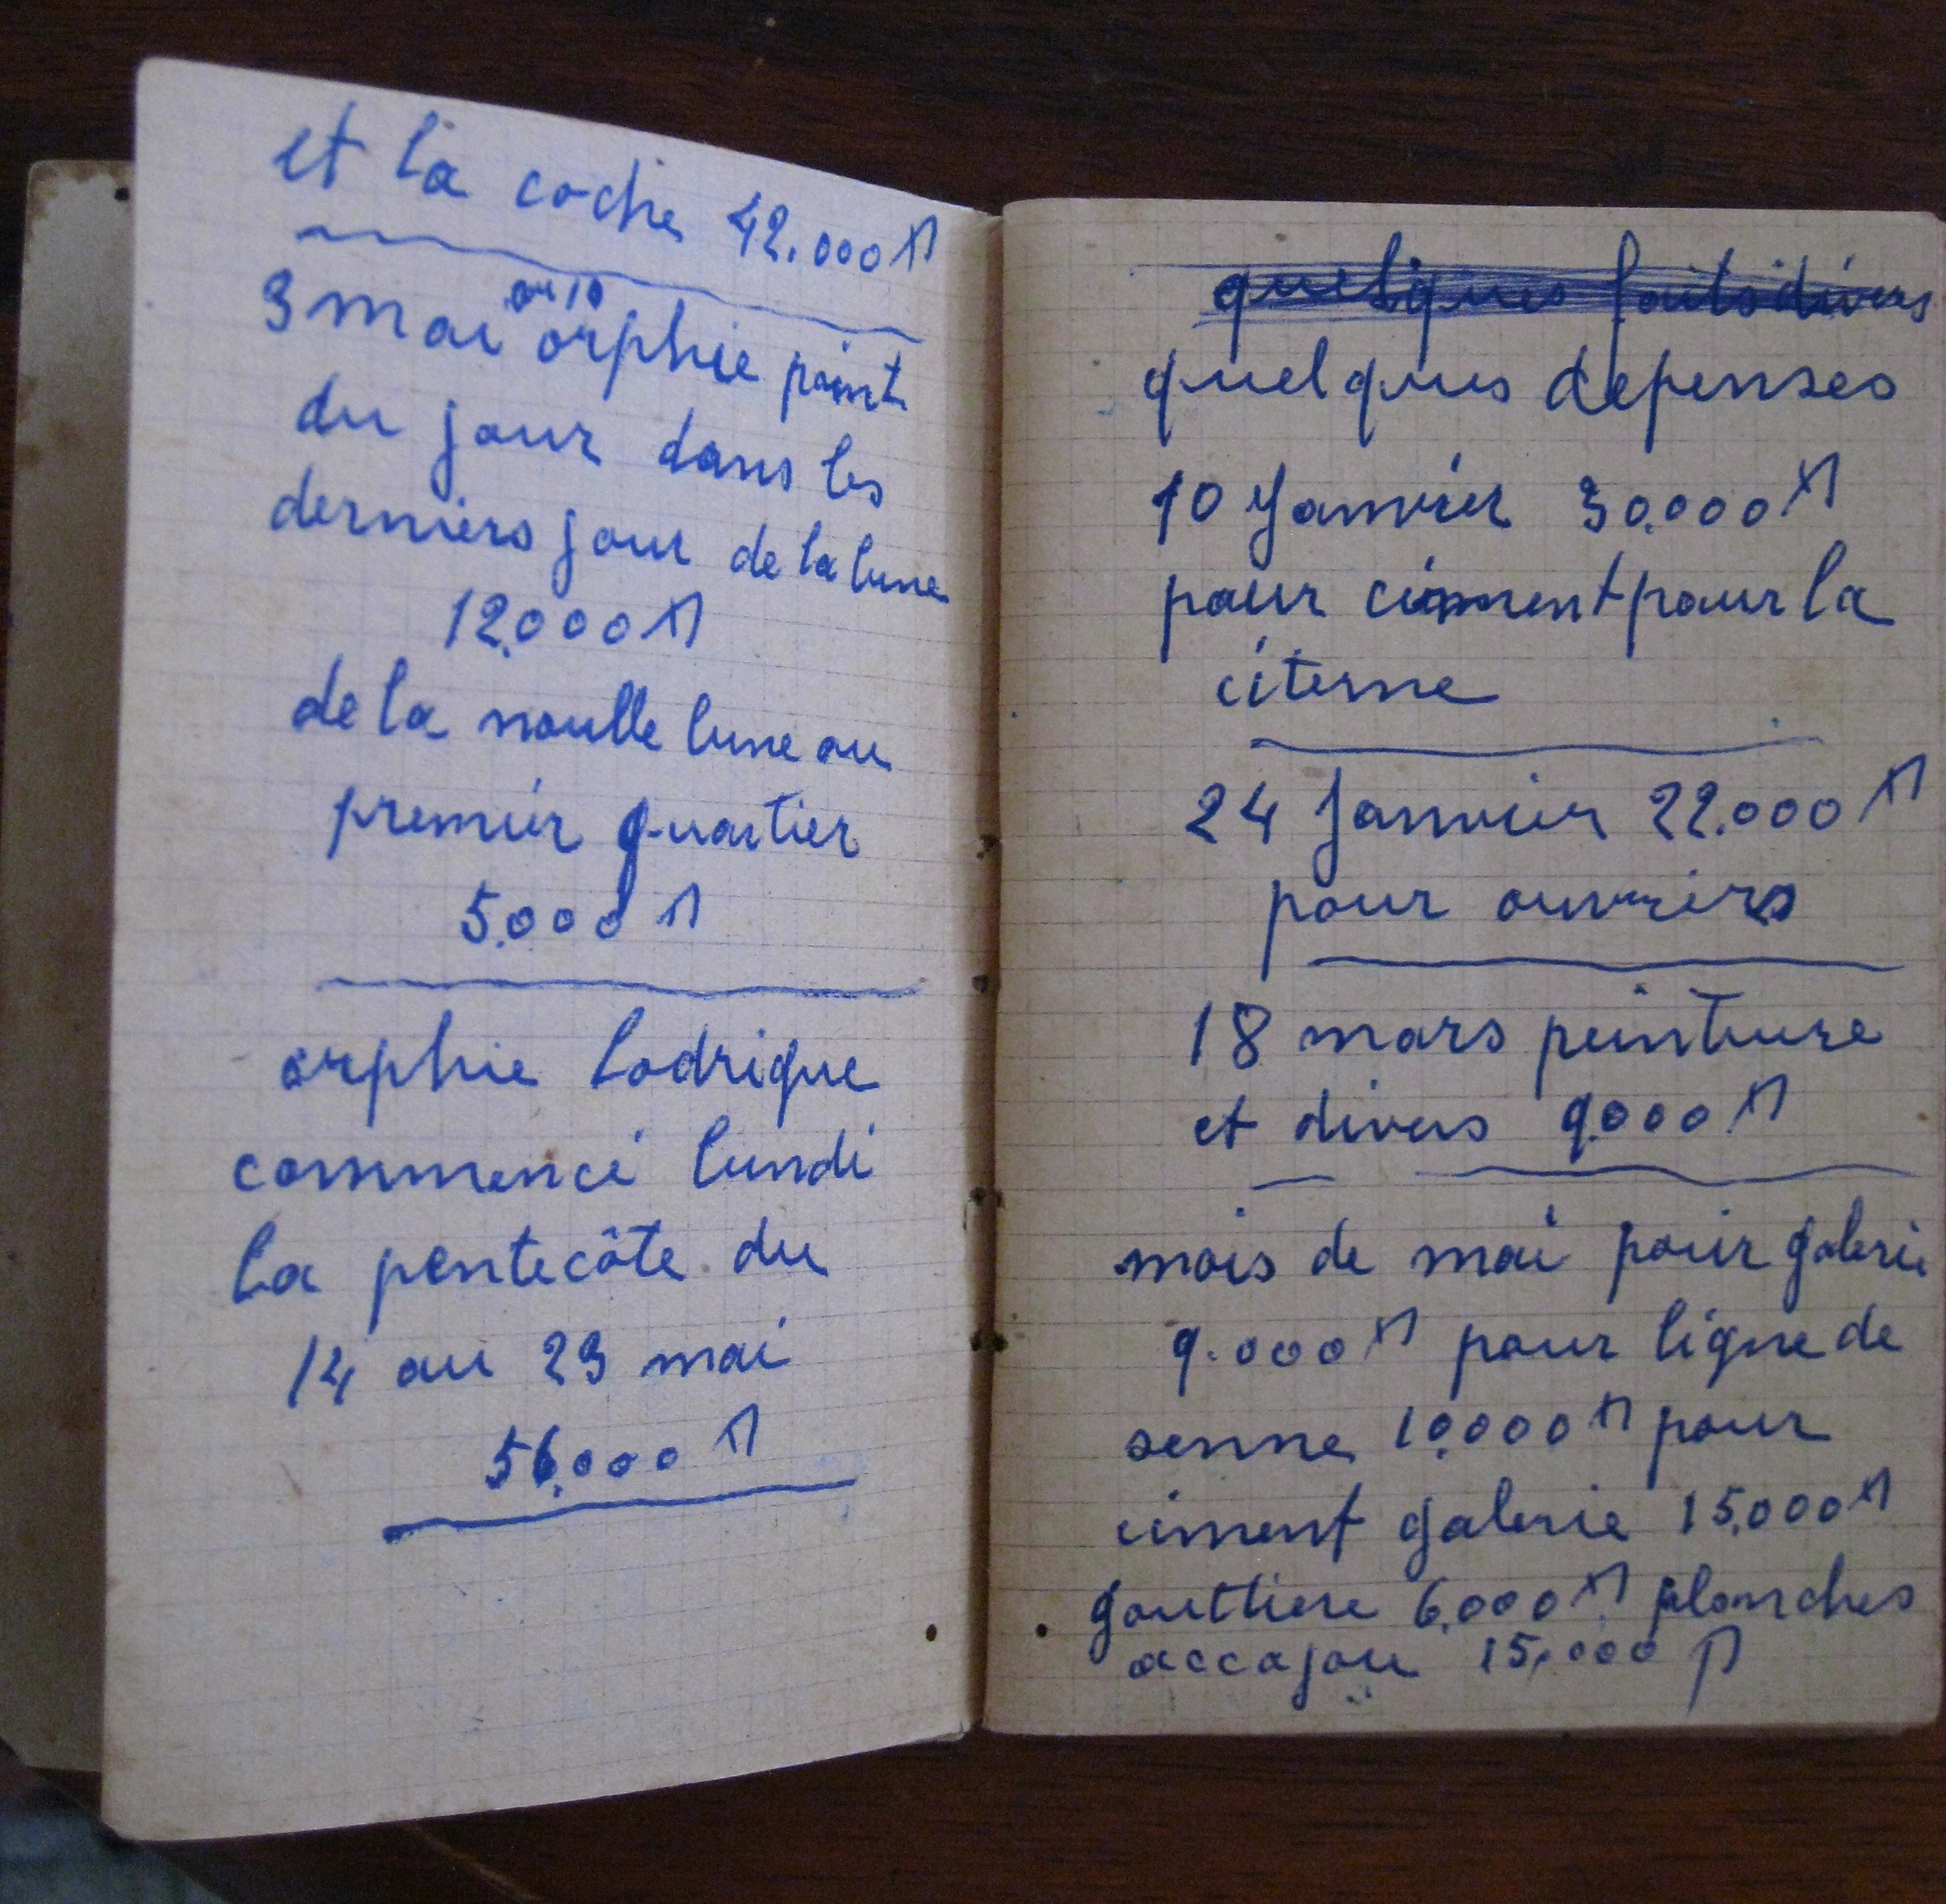 et la coche 42.000 fr
3 mai au 10 orphie point
du jour dans les
derniers jour de la lune
12.000 fr
de la noulle lune au
premier quartier
5.000 fr
orphie Lodrique
commencé lundi
la pentecôte du
14 au 23 mai
56.000 fr
quelques faits divers
quelques depenses
10 Janvier 30.000 fr
pour ciment pour la
citerne
24 Janvier 22.000 fr
pour ouvriers
18 mars peinture
et divers 9.000 fr
mois de mai pour galerie
9.000 fr pour ligne de
senne 10.000 fr pour
ciment galerie 15.000 fr
gouttiere 6.000 fr planches
accajou 15.000 fr